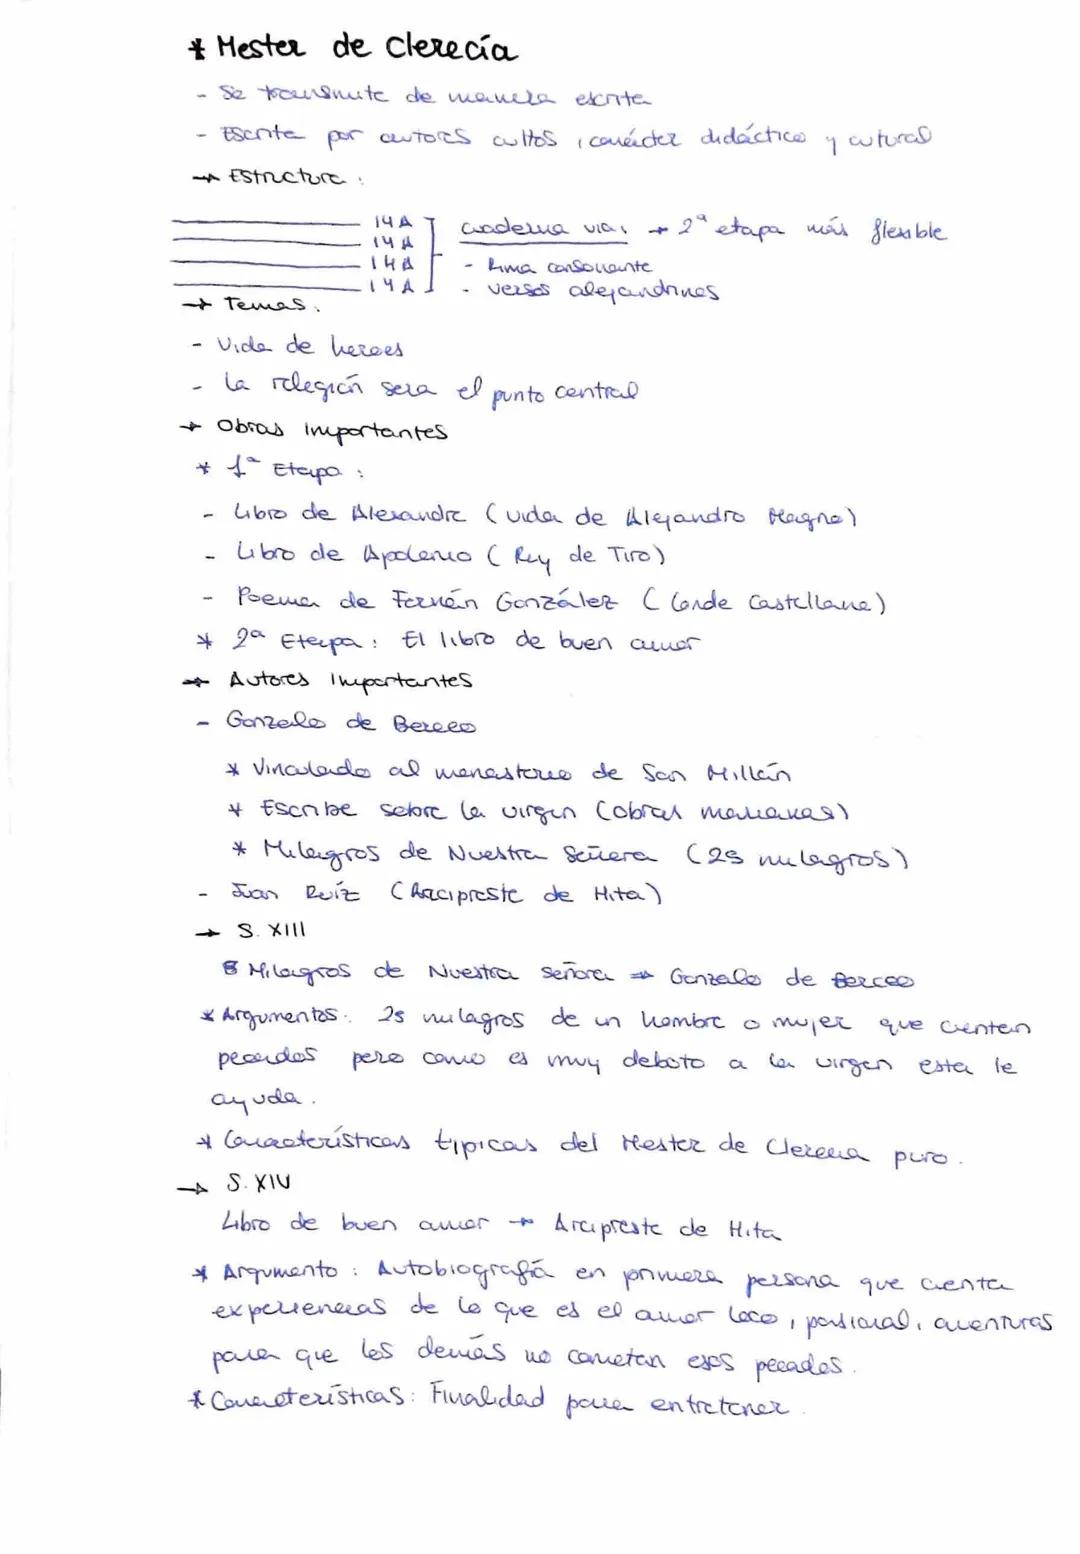 * Mester de Clerecía
- Se transmite de manera escrita
- Escrita por autores cultos, carácter didáctico y cutural
→ Estructura:
14 A
14 A
14 A
14 A
cuaderna via, → 2ª etapa más flexible
- Rima consonante
- versos alejandrinos
→ Temas:
- Vida de heroes
- La relegión sera el punto central
→ Obras importantes
* 1ª Etapa:
- Libro de Alexandre (vida de Alejandro Magno)
- Libro de Apolonio (Rey de Tiro)
- Poema de Fernán González (Conde Castellano)
* 2ª Etapa: El libro de buen amor
→ Autores Importantes
- Gonzalo de Berceo
* Vinculado al monasterio de San Millán
* Escribe sobre la virgen (obras marianas)
* Milagros de Nuestra Señora (25 milagros)
- Juan Ruíz (Arcipreste de Hita)
→ S. XIII
Milagros de Nuestra señora → Gonzalo de Berceo
* Argumentos: 25 milagros de un hombre o mujer que cuentan
pecados pero como es muy deboto a la virgen esta le
ayuda.
* Características tipicas del Mester de Clerecía puro.
→ S. XIV
Libro de buen amor → Arcipreste de Hita
* Argumento: Autobiografía en primera persona que cuenta
experiencias de lo que es el amor loco, pasional, aventuras
para que los demás no cometan esos pecados.
* Características: Finalidad para entretener.